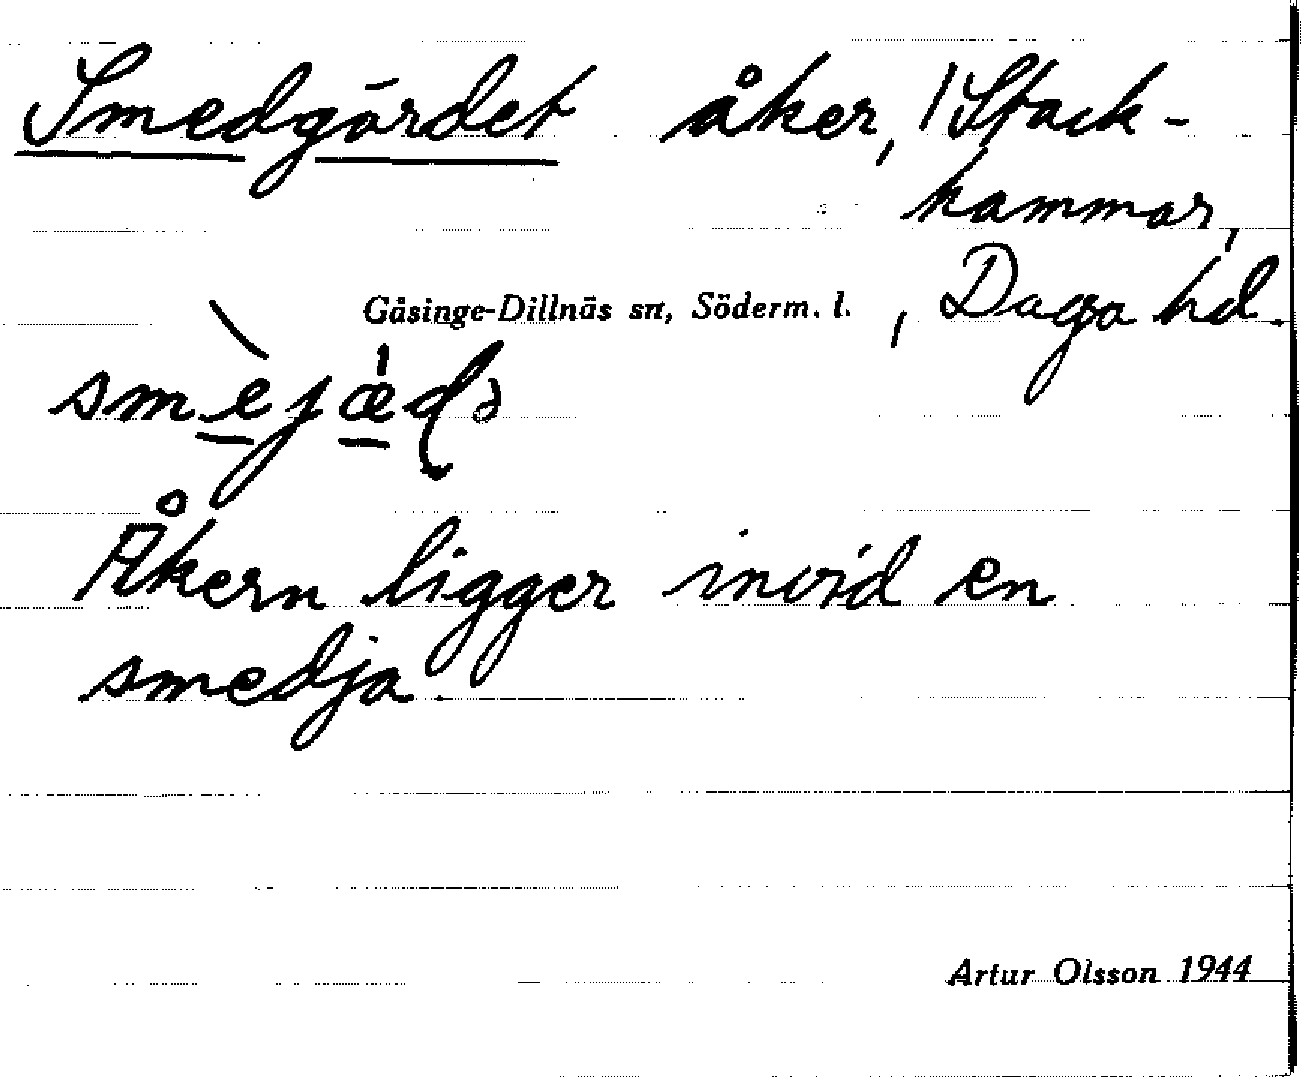 Smedgärdet åker, / Stack-
hammar,
Gåsinge-Dillnäs sn, Söderm. l. , Daga hd.
smèjǽdə
Åkern ligger invid en
smedja.
Artur Olsson 1944